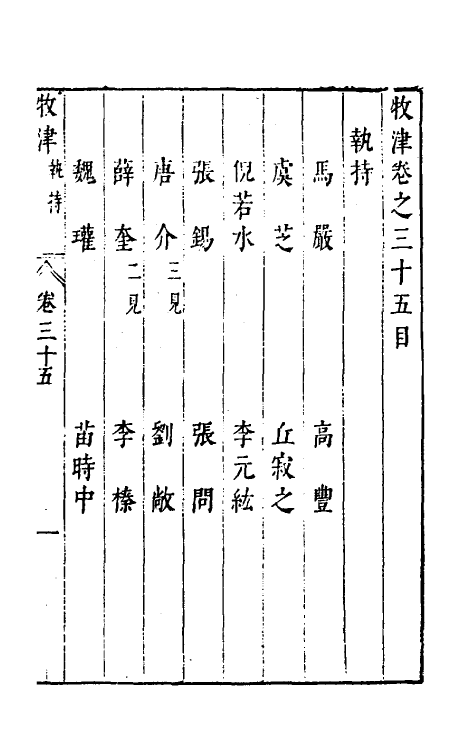 牧津卷之三十五目
執持
馬嚴 高豐
虞芝 丘寂之
倪若水 李元紘
張錫 張問
唐介三見 劉敞
薛奎二見 李榛
魏瓘 苗時中
牧津 執持 卷三十五 一